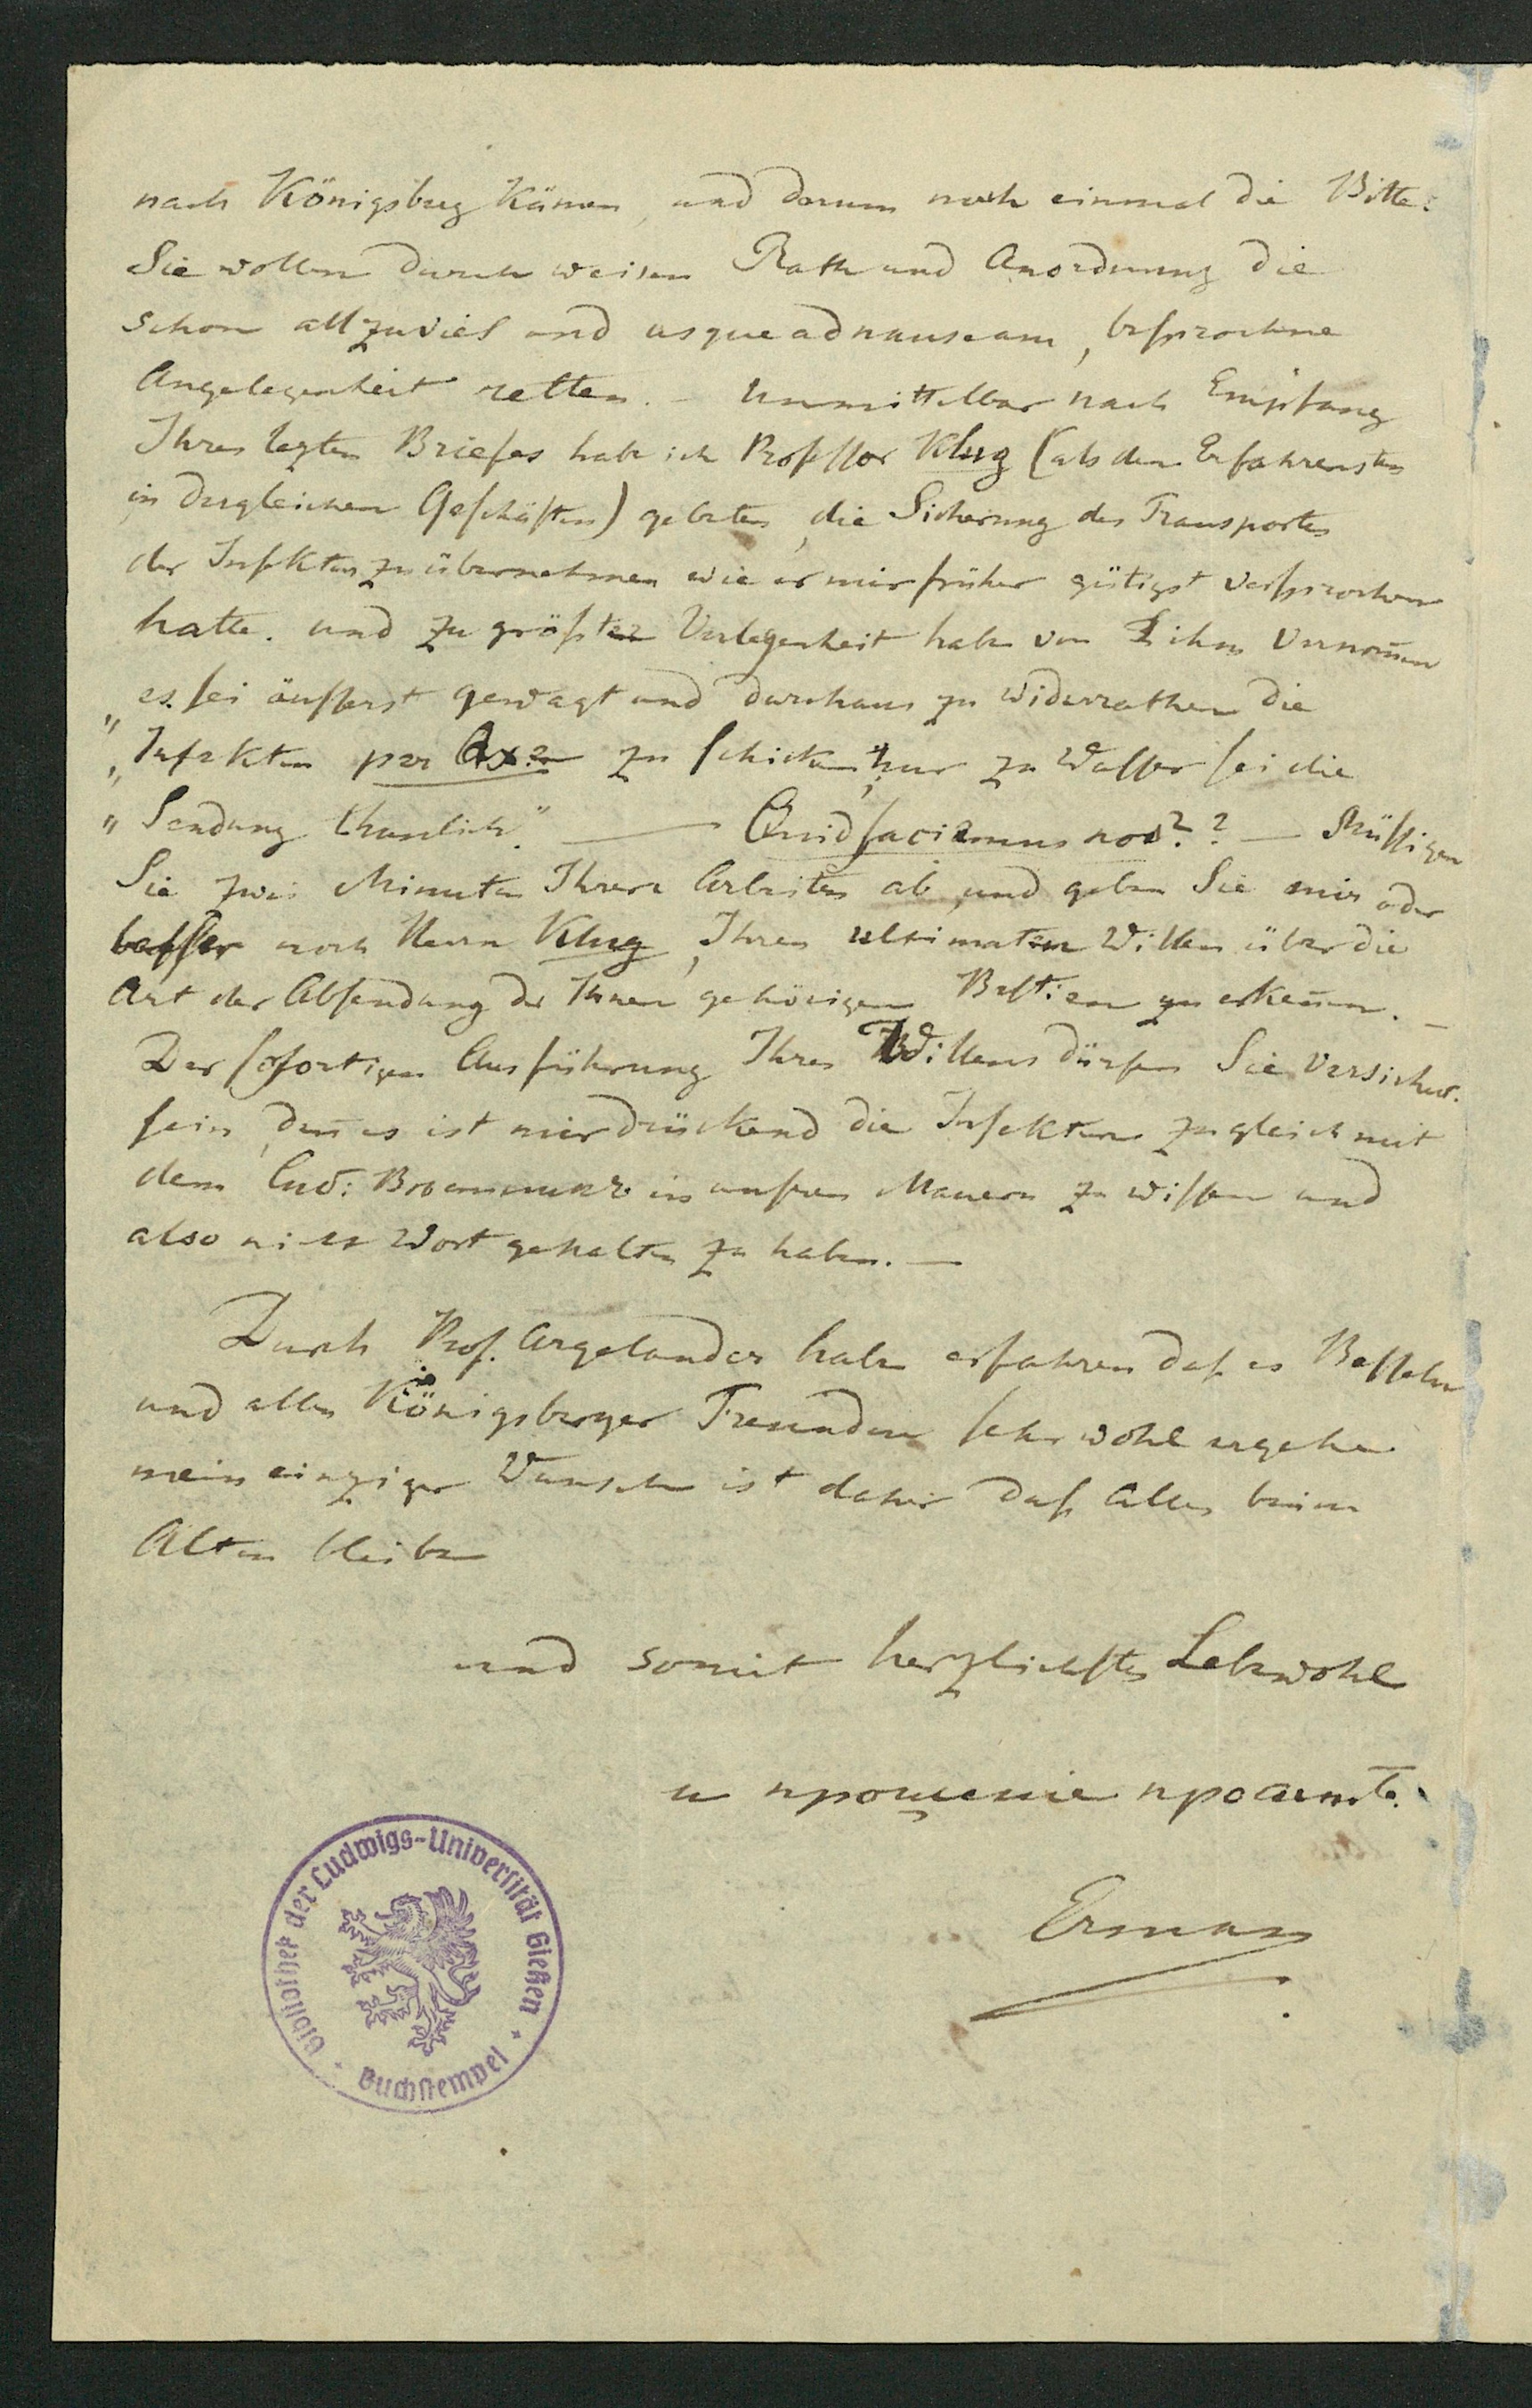 nach Königsberg kämen, und darum noch einmal die Bitte:
Sie wollen durch weisen Rath und Anordnung die
schon allzuviel und usque ad nauseam, besprochne
Angelegenheit retten. – Unmittelbar nach Empfang
Ihres lezten Briefes habe ich Professor Klug (als den Erfahrensten
in dergleichen Geschäften) gebeten, die Sicherung des Transportes
der Insekten zu übernehmen wie er mir früher gütigst versprochen
hatte. und zu größter Verlegenheit habe von ihm vernom̅en
„es sei äusserst gewagt und durchaus zu widerrathen die
„Insekten per Axe zu schicken, nur zu Wasser sei die
„Sendung thunlich." — Quid faciemus nos?? — Müssigen
Sie zwei Minuten Ihren Arbeiten ab, und geben Sie mir oder
besser noch Herrn Klug, Ihren ultimaten Willen über die
Art der Absendung der Ihnen gehörigen Bestien zu erken̅en. –
Der sofortigen Ausführung Ihres Willens dürfen Sie versichert
sein, den̅ es ist mir drückend die Insekten zugleich mit
dem in unseren Mauern zu wissen und
also nicht Wort gehalten zu haben. —
Durch Prof. Argelander habe erfahren daß es Besseln
und allen Königsberger Freunden sehr wohl ergehe
mein einziger Wunsch ist daher daß Alles beim
Alten bleibe
und somit herzlichstes Lebewohl
и прощение просить.
Erman
Bibliothek der Ludwigs-Universität Gießen
Buchstempel